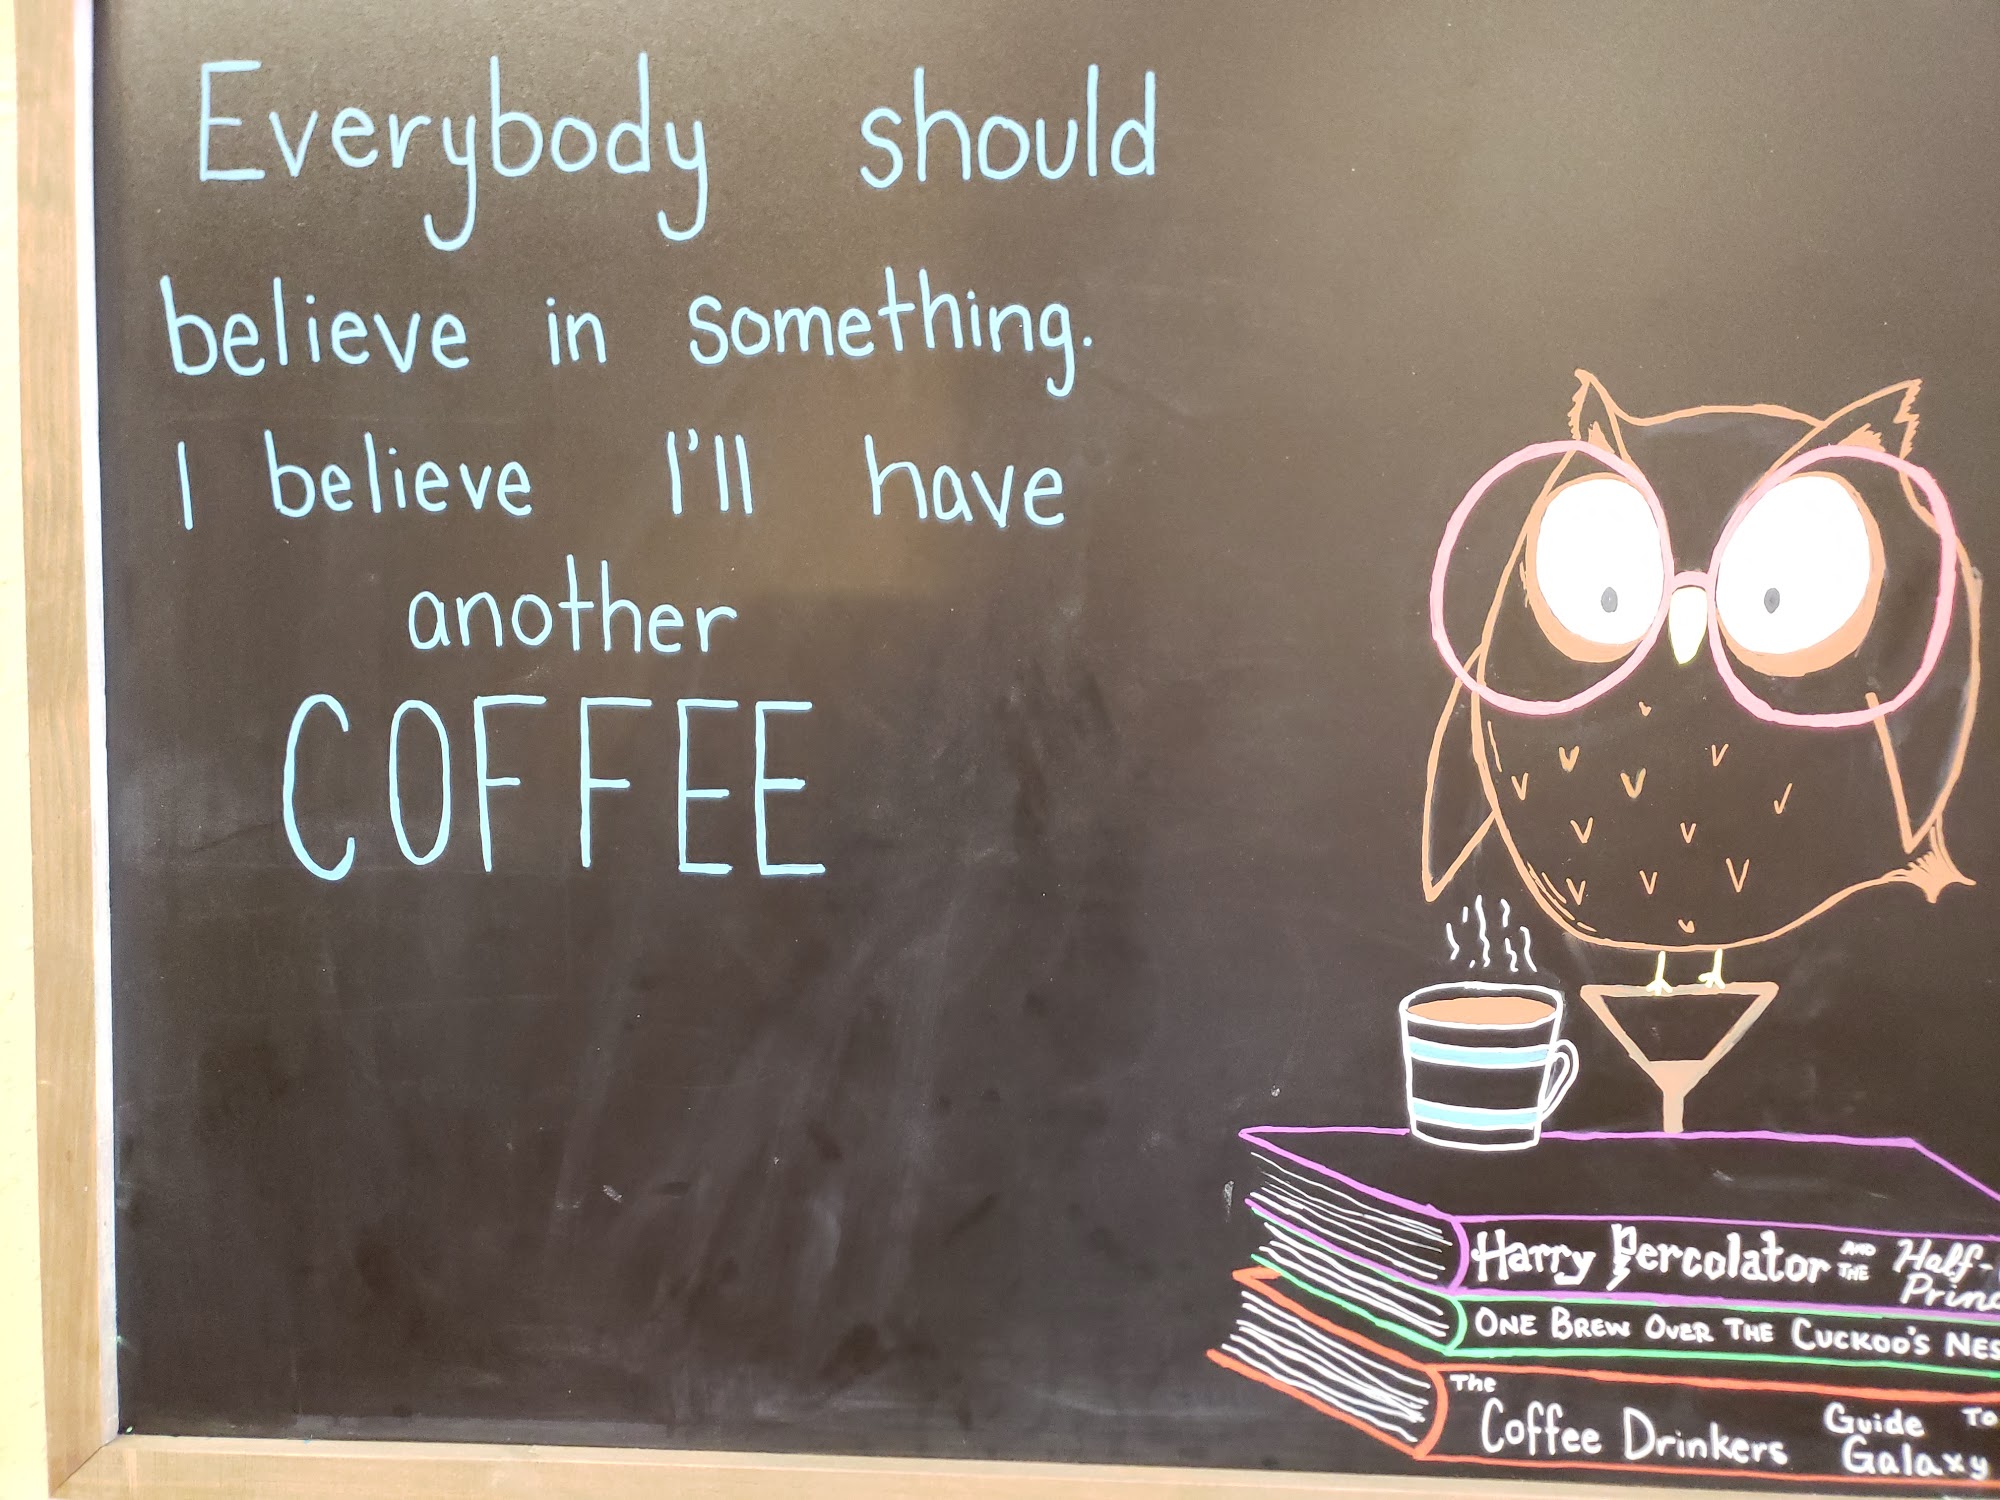 Everybody should
believe in something.
I believe I'll have
another
COFFEE
Harry Percolator AND THE Half-
Princ
ONE BREW OVER THE CUCKOO'S NES
The
Coffee Drinkers Guide To
Galaxy